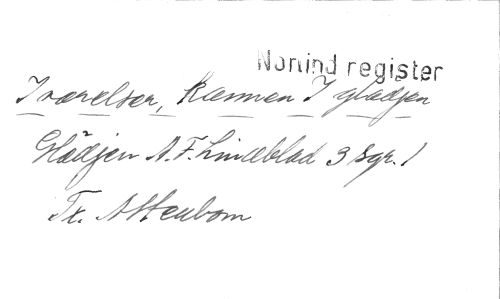 Norind register
I værelser, kännen I glädjen
Glädjen A.F. Lindblad 3 Sgr. 1
Tx. Atterbom